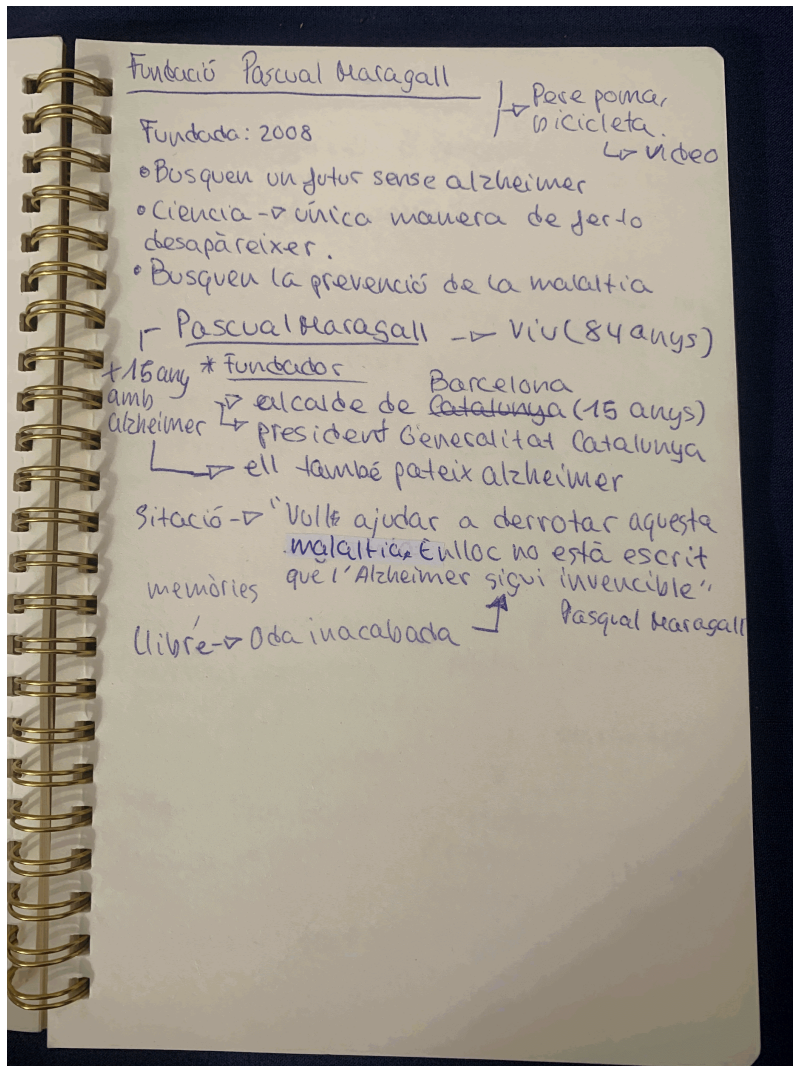 Fundació Pascual Maragall
Pere poma,
bicicleta.
↳ video
Fundada: 2008
• Busquen un futur sense alzheimer
• Ciencia → única manera de fer-lo
desapàreixer.
• Busquen la prevenció de la malaltia
Pascual Maragall → Viu (84 anys)
+15 any
amb
alzheimer
* Fundador
Barcelona
alcalde de Catalunya (15 anys)
president Generalitat Catalunya
ell també pateix alzheimer
Sitació → "Vull ajudar a derrotar aquesta
malaltia. Enlloc no està escrit
que l'Alzheimer sigui invencible"
memòries
Pasqual Maragall
Llibre → Oda inacabada